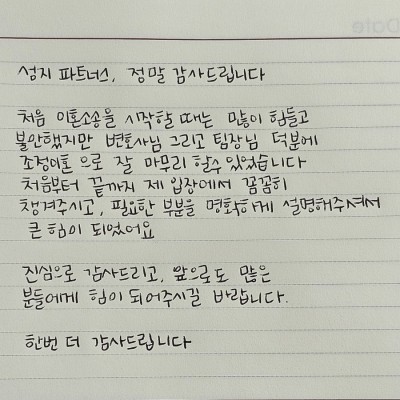 성지 파트너스, 정말 감사드립니다
처음 이혼소송을 시작할 때는 많이 힘들고
불안했지만 변호사님 그리고 팀장님 덕분에
조정이혼 으로 잘 마무리 할수 있었습니다
처음부터 끝까지 제 입장에서 꼼꼼히
챙겨주시고, 필요한 부분을 명확하게 설명해주셔서
큰 힘이 되었어요
진심으로 감사드리고, 앞으로도 많은
분들에게 힘이 되어주시길 바랍니다.
한번 더 감사드립니다